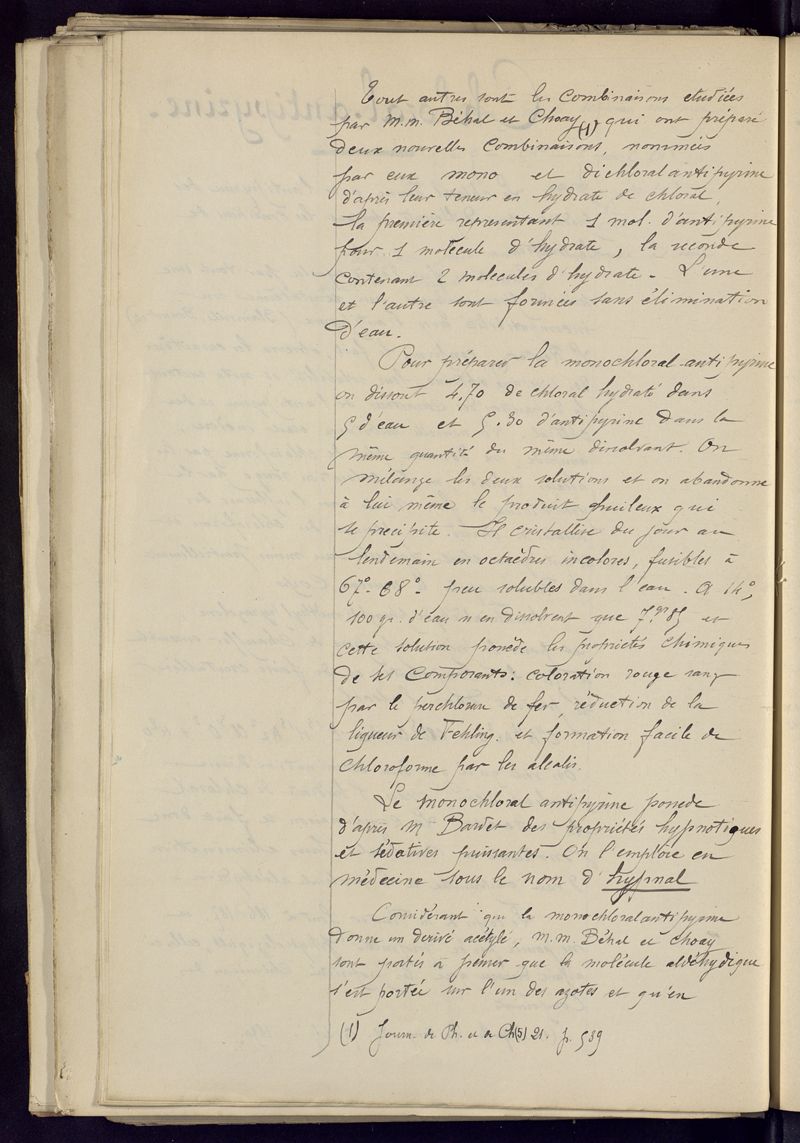 Tout autres sont les combinaisons etudiées
par M.M. Béhal et Choay (1) qui ont préparé
deux nouvelles combinaisons, nommées
par eux mono et dichloralantipyrine
d'après leur teneur en hydrate de chloral,
la première representant 1 mol. d'antipyrine
pour 1 molécule d'hydrate, la seconde
contenant 2 molécules d'hydrate. L'une
et l'autre sont formées sans élimination
d'eau.
Pour préparer la monochloral-antipyrine
on dissout 4,70 de chloral hydraté dans
5 d'eau et 5.30 d'antipyrine dans la
même quantité du même dissolvant. On
mélange les deux solutions et on abandonne
à lui même le produit huileux qui
se precipite. Il cristallise du jour au
lendemain en octaèdres incolores, fusibles à
67°-68° peu solubles dans l'eau. A 14°,
100 gr. d'eau n'en dissolvent que 7.gr 85 et
cette solution possède les propriétés chimiques
de ses composants: coloration rouge sang
par le perchlorure de fer, réduction de la
liqueur de Fehling. et formation facile de
chloroforme par les alcalis.
Le monochloral antipyrine possede
d'après M Bardet des propriétés hypnotiques
et sédatives puissantes. On l'emploie en
médecine sous le nom d'hypnal
Considérant que la monochloralantipyrine
donne un derivé acétylé, M.M. Béhal et Choay
sont portés à penser que la molécule aldéhydique
s'est portée sur l'un des azotes et qu'en
(1) Journ. de Ph. et de Ch (5) 21. p. 539